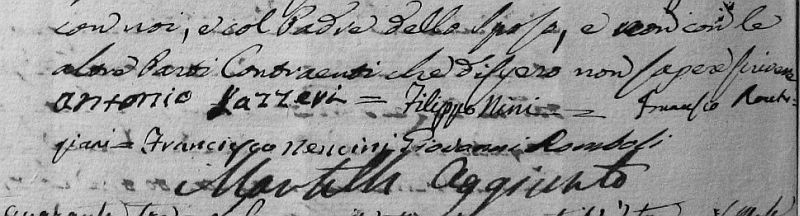 con noi, e col Padre dello Sposo, e non con le
altre Parti Contraenti che dissero non sapere scrivere
antonio Lazzeri = Filippo Nini = Francesco
= Francisco Nencini Giovanni Romboli
Martelli Aggiunto